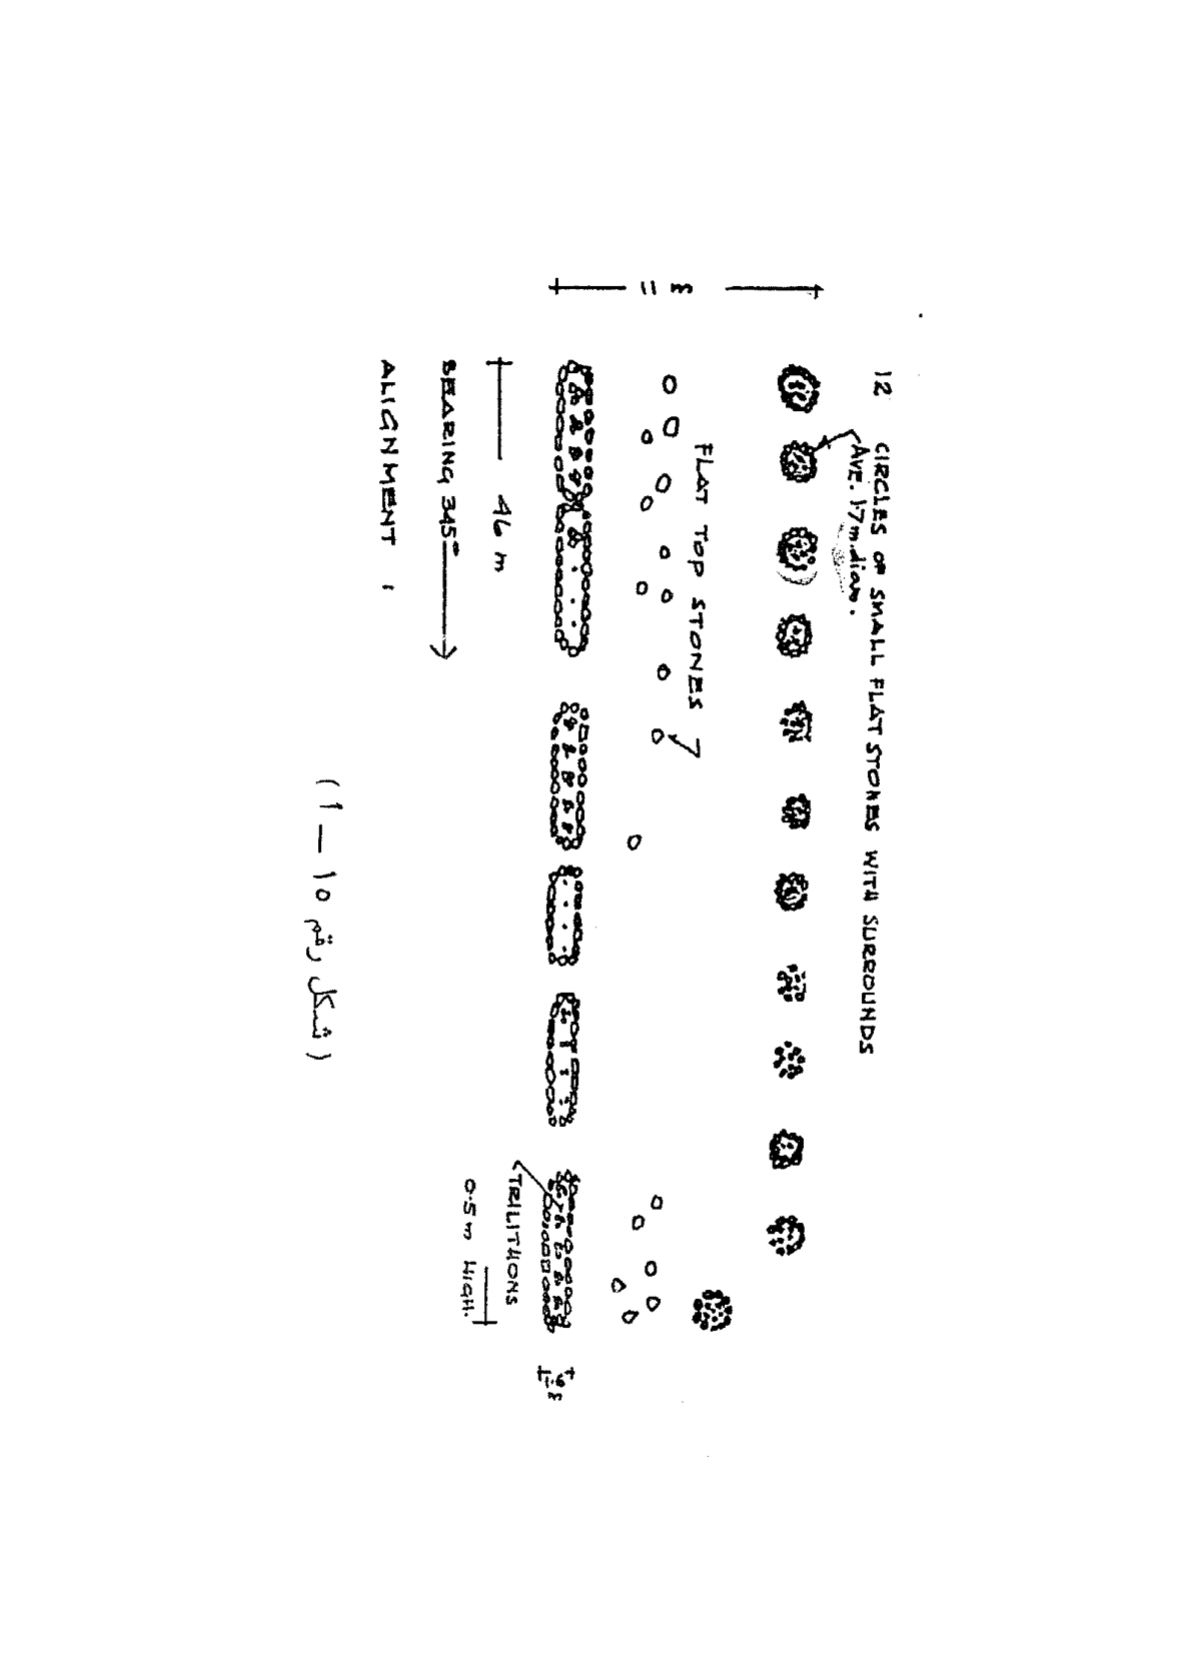 12 CIRCLES OF SMALL FLAT STONES WITH SURROUNDS
AVE. 1.7m. diam.
11 m
FLAT TOP STONES
46 m
TRILITHONS
0.5 m HIGH.
BEARING 345°
ALIGNMENT 1
(شكل رقم ١٥ — ١)